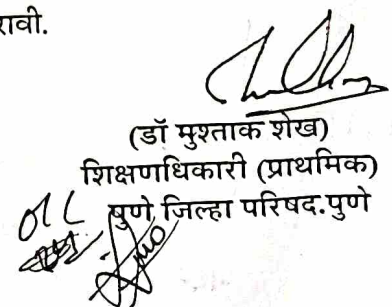 रावी.
(डॉ मुश्ताक शेख)
शिक्षणधिकारी (प्राथमिक)
पुणे जिल्हा परिषद.पुणे